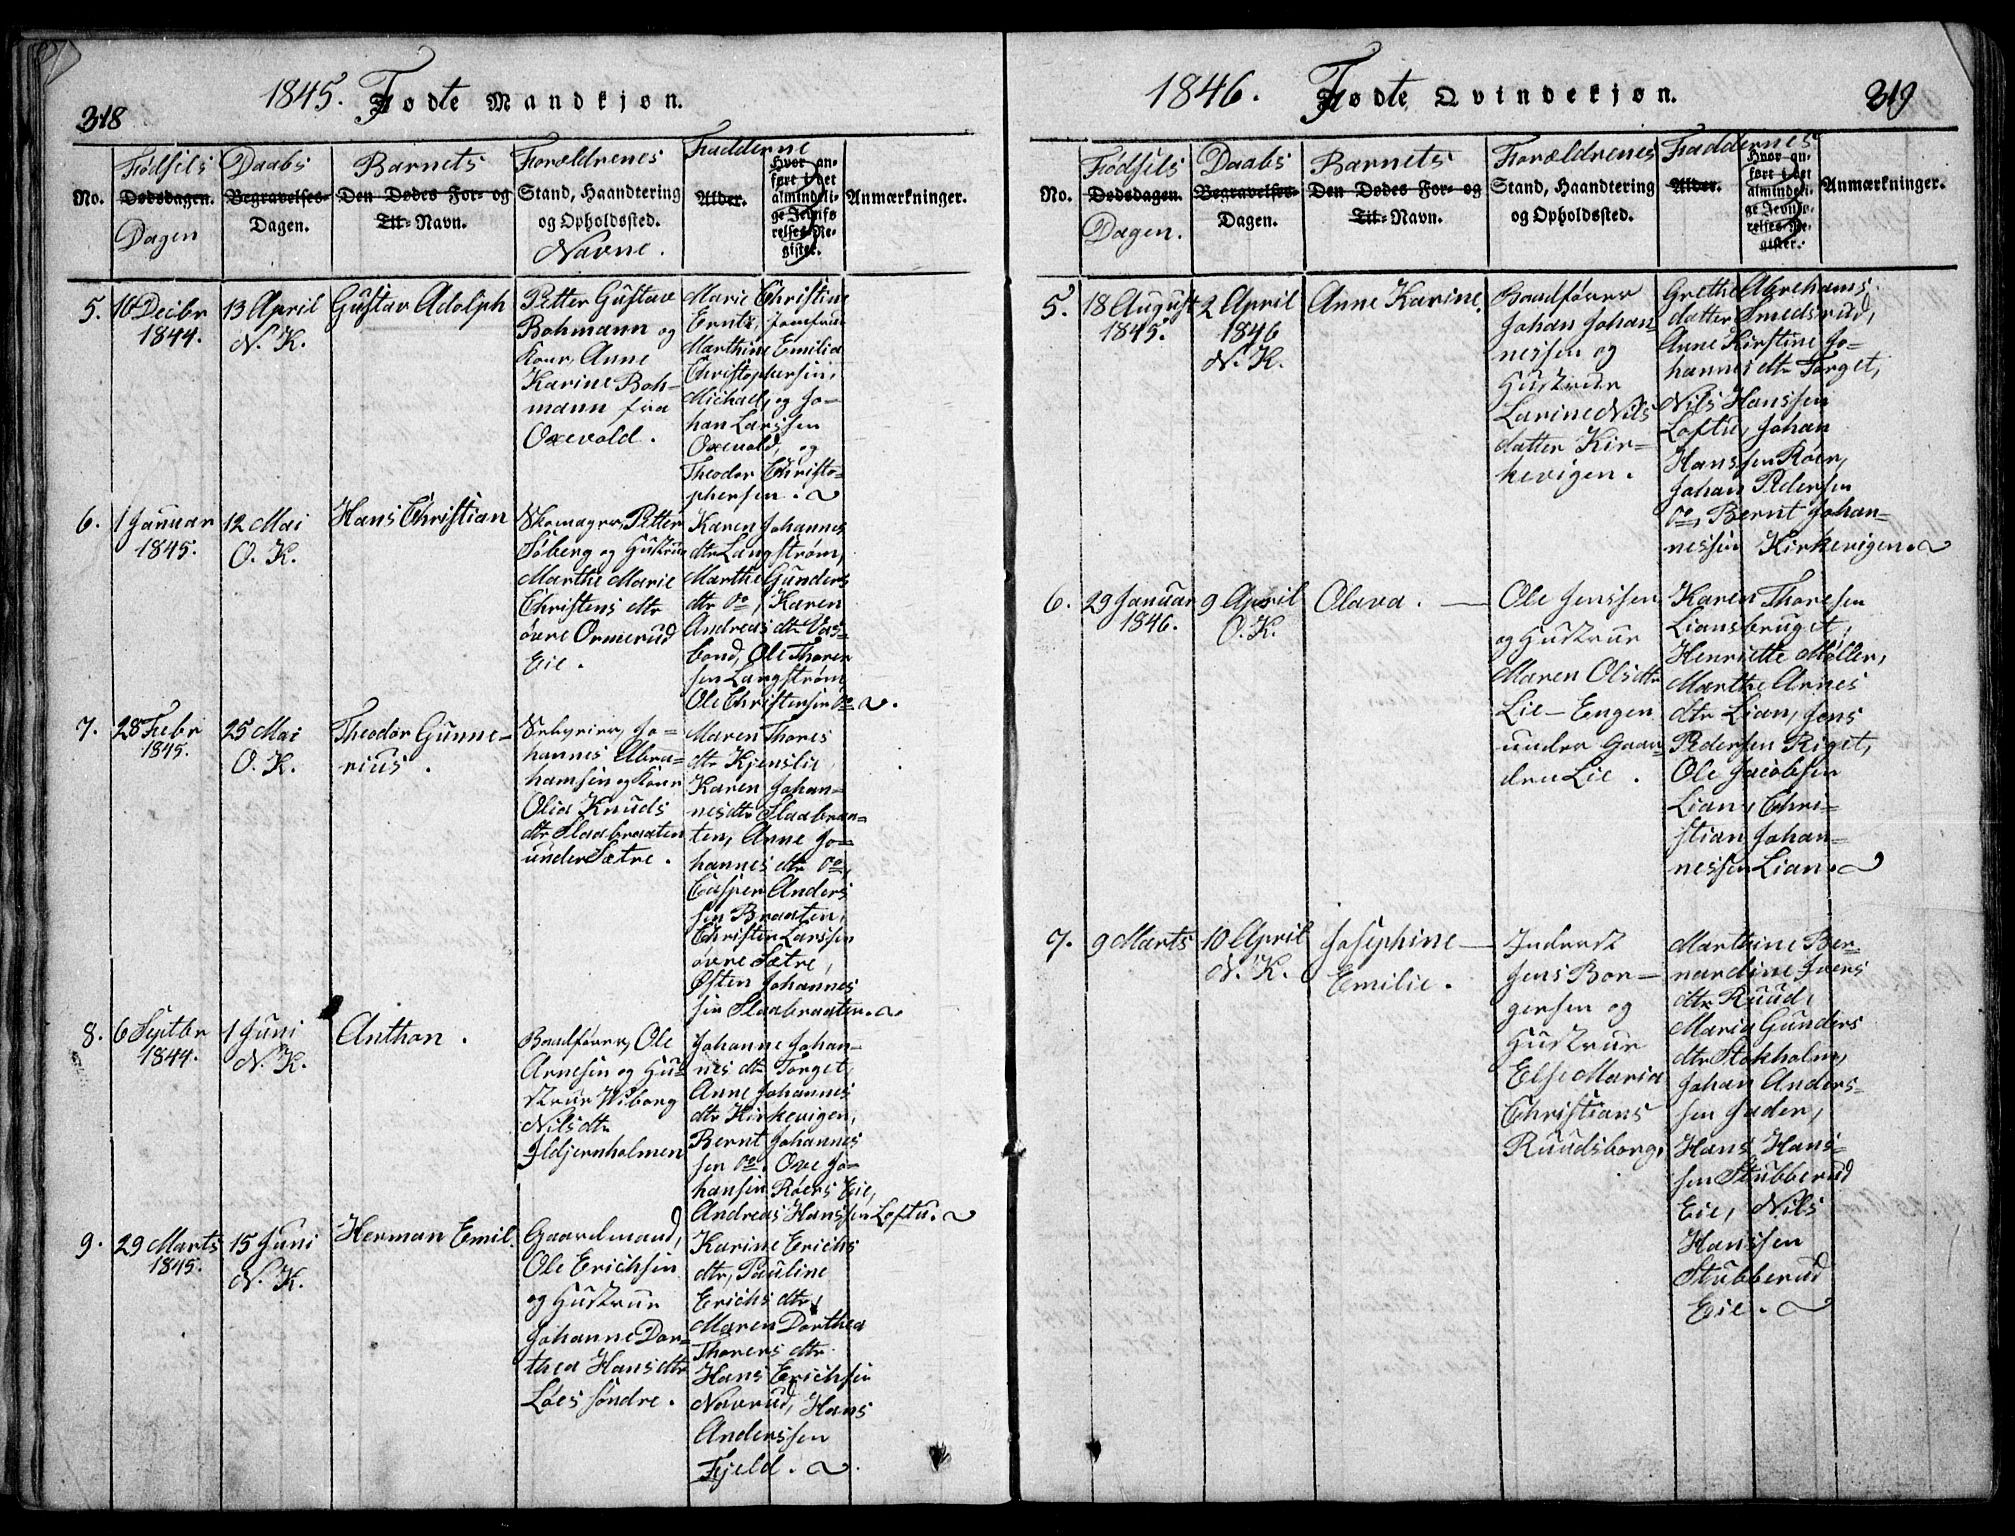 318
1845. Fødte Mandkjøn.
No.
Fødsels
Dødsdagen.
Dagen
Daabs
Begravelses-
Dagen.
Barnets
Den Dødes For- og
Til-Navn.
Forældrenes
Stand, Haandtering
og Opholdssted.
Navne.
Fadderne
Alder.
Hvor an-
ført i det
almindeli-
ge Jevnfø-
relses-Re-
gister.
Anmærkninger.
5.
10 Decbr
1844.
13 April
N. K.
Gustav Adolph
Petter Gustav
Bohmann og
Kone Anne
Karine Boh-
mann fra
Oxevold.
Marie Christine
Erntz, Jomfrue
Marthine Emilia
Christophersen,
Michael, og Jo-
han Larssen
Oxevold, og
Theodor Christo-
phersen.
6.
1 Januar
1845.
12 Mai
O. K.
Hans Christian
Skomager, Petter
Söberg og Hustrue
Marthe Marie
Christens dtr
övre Ormerud
Eie.
Karen Johannes
dtr Langström,
Marthe Gunders
dtr do, Karen
Andreas dtr Vas-
bond, Ole Thorer
sen Langström
Ole Christensen do.
7.
28 Febr
1845.
25 Mai
O. K.
Theodor Gunne-
rius.
Selveier, Jo-
hannes Abra-
hamsen og Kone
Olia Knuds
dtr Slaabraaten
under Sætre.
Maren Thores
dtr Kjenslie
Karen Johan-
nesdtr Slaabraa-
ten, Anne Jo-
hannes dtr do,
Casper Anders
sen Braaten,
Christen Larssen
övre Sætre,
Østen Johannes
sen Slaabraaten.
8.
6 Septbr
1844.
1 Juni
N. K.
Anthon.
Baadförer, Ole
Arnesen og Hu-
strue Wiborg
Nilsdtr
Ildjernholmen
Johanne Johan-
nes dtr Torget,
Anne Johannes
dtr Kirkevigen,
Bernt Johannes
sen do. Ove Jo-
hansen Röers Eie,
Andreas Hanssen Loftu.
9.
29 Marts
1845.
15 Juni
N. K.
Herman Emil.
Gaardmand,
Ole Erichsen
og Hustrue
Johanne Dor-
thea Hansdtr
Löes söndre.
Karine Erichs
dtr, Pauline
Erichs dtr,
Maren Dorthea
Thorers dtr
Hans Erichsen
Naverud, Hans
Anderssen
Fjeld.
1846. Fødte Qvindekjøn.
319
No.
Fødsels
Dødsdagen.
Dagen.
Daabs
Begravelses-
Dagen.
Barnets
Den Dødes For- og
Til-Navn.
Forældrenes
Stand, Haandtering
og Opholdssted.
Faddernes
Alder.
Hvor an-
ført i det
almindeli-
ge Jevnfø-
relses-Re-
gister.
Anmærkninger.
5.
18 August
1845.
2 April
1846
N. K.
Anne Karine.
Baadförer
Johan Johan-
nessen og
Hustrue
Larine Nils
datter Kir-
kevigen.
Grethe Abrehams-
datter Smedsrud,
Anne Kirstine Jo-
hannes dtr Torget,
Nils Hanssen
Loftu, Johan
Hanssen Röer,
Johan Pedersen
do, Bernt Johan-
nessen Kirkevigen.
6.
29 Januar
1846.
9 April
O. K.
Olava.
Ole Jenssen
og Hustrue
Maren Olsdtr
Lie-Engen
under Gaar-
den Lie.
Karen Thoresen
Liansbruget,
Henriette Møller,
Marthe Arnes
dtr Lian, Jens
Pedersen Riget,
Ole Jacobsen
Lian, Chri-
stian Johan-
nessen Lian.
7.
9 Marts
10 April
N. K.
Josephine
Emilie.
Inderst
Jens Bor-
gersen og
Hustrue
Else Maria
Christians
Ruudsborg,
Marthine Ber-
nardine Ivers
dtr Ruud,
Maria Gunders
dtr Stokholm,
Johan Anders-
sen Jader,
Hans Hans-
sen Stubberud
Eie, Nils
Hanssen
Stubberud
Eie.